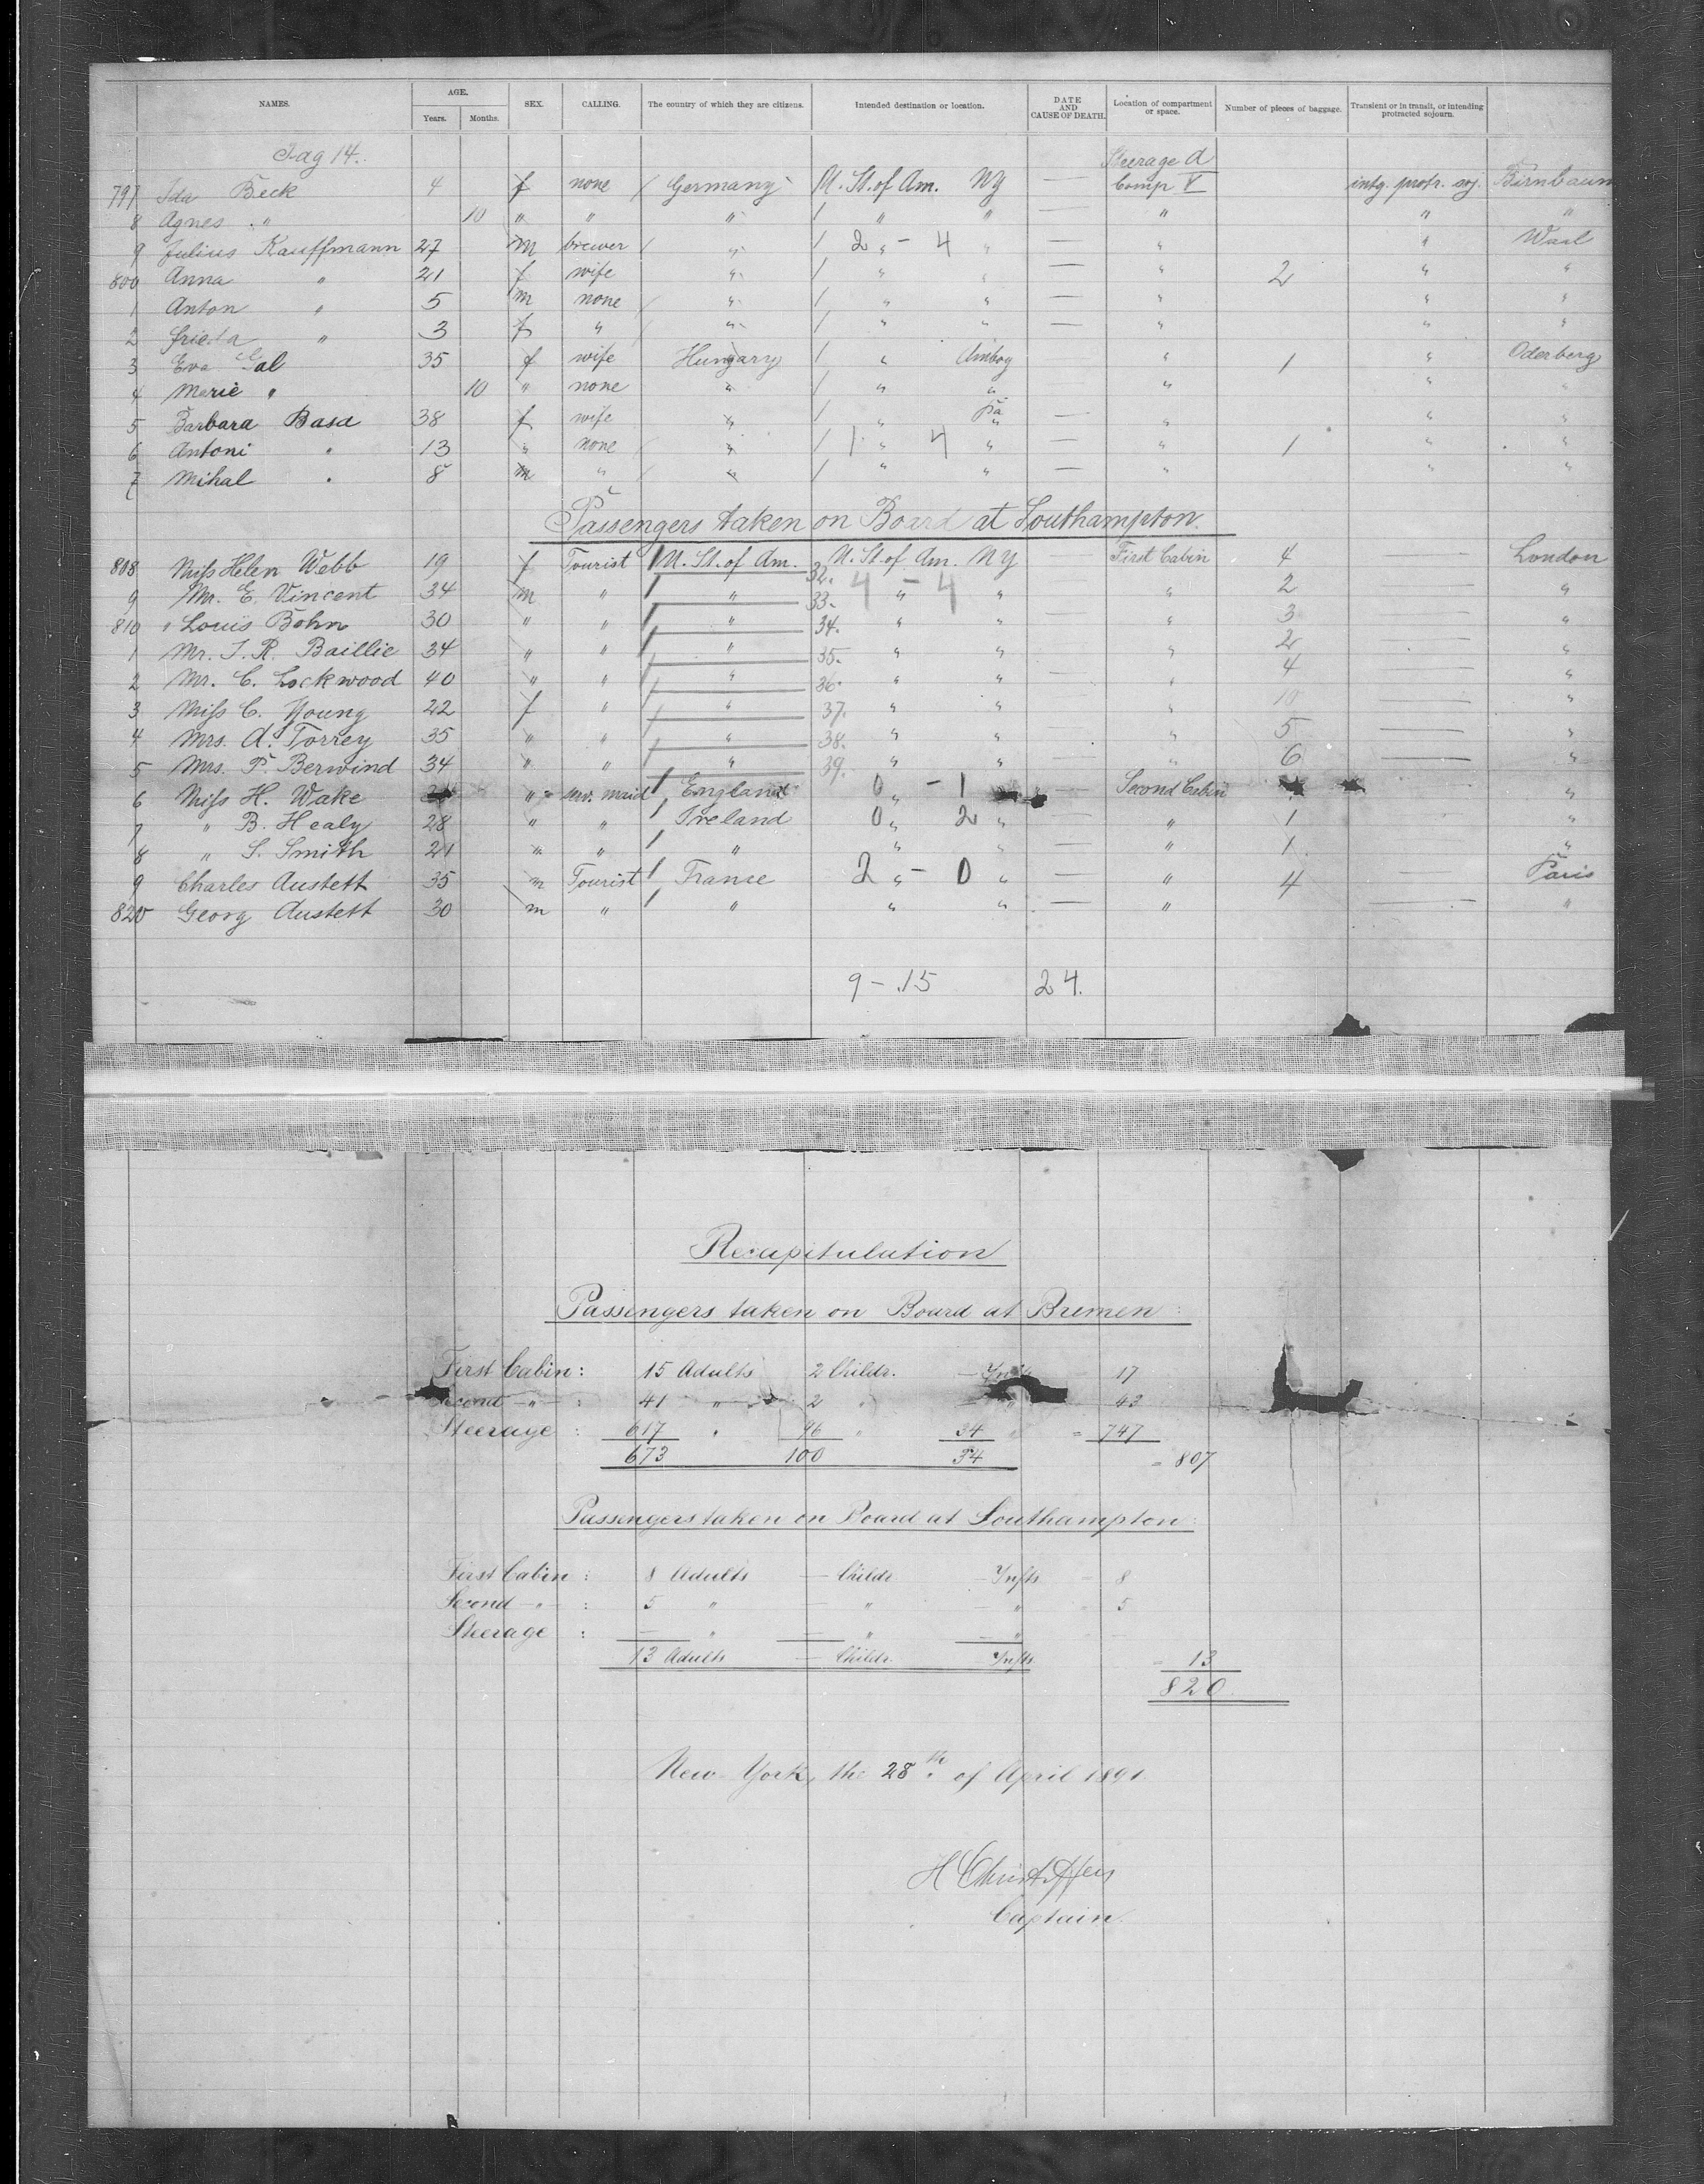 NAMES. AGE. Years. Months. SEX. CALLING. The country of which they are citizens. Intended destination or location. DATE AND CAUSE OF DEATH. Location of compartment or space. Number of pieces of baggage. Transient or in transit, or intending protracted sojourn.
Tag 14. Steerage A
797 Ida Beck 4 f none / Germany U. St. of Am. NY — Comp V intg. protr. soj. Birnbaum
8 Agnes " 10 " " " / " " — " " "
9 Julius Kauffmann 27 m brewer / " / 2 " - 4 " — " " Wasl
800 Anna " 21 f wife " / " " — " 2 " "
1 Anton " 5 m none / " / " " — " " "
2 Frieda " 3 f " / " / " " — " " "
3 Eva Gal 35 f wife Hungary / " Amboy " 1 " Oderberg
4 Marie " 10 " none " / " " " " "
5 Barbara Basa 38 f wife " / " Pa — " " "
6 Antoni " 13 " none / " / 1 " 4 " — " 1 " "
7 Mihal " 8 m " / " / " " — " " "
Passengers taken on Board at Southampton.
808 Miss Helen Webb 19 f Tourist / U. St. of Am. 32. U. St. of Am. NY — First Cabin 4 — London
9 Mr. E. Vincent 34 m " / " 33. 4 " - 4 " " 2 — "
810 " Louis Bohn 30 " " / " 34. " " — " 3 — "
1 Mr. J. R. Baillie 34 " " / " 35. " " — " 2 — "
2 Mr. C. Lockwood 40 " " / " 36. " " — " 4 — "
3 Miss C. Young 22 f " / " 37. " " — " 10 — "
4 Mrs. A. Torrey 35 " " / " 38. " " — " 5 — "
5 Mrs. P. Berwind 34 " " / " 39. " " — " 6 — "
6 Miss H. Wake " serv. maid / England 0 " - 1 — Second Cabin "
7 " B. Healy 28 " " / Ireland 0 " 2 " — " 1 — "
8 " S. Smith 21 " " / " " " — " 1 — "
9 Charles Austett 35 m Tourist / France 2 " - 0 " — " 4 — Paris
820 Georg Austett 30 m " / " " " — " — "
9 - 15 24.
Recapitulation
Passengers taken on Board at Bremen:
First Cabin: 15 Adults 2 Childr. — 17
Second - " - : 41 " 2 " — " 43
Steerage : 617 " 96 " 34 " = 747
673 100 34 = 807
Passengers taken on Board at Southampton:
First Cabin : 8 Adults — Childr. — Infts — 8
Second - " - : 5 " — " — " 5
Steerage : — " — " — " —
13 Adults — Childr. Infts. = 13
820
New York, the 28th of April 1891.
H Christoffers
Captain.